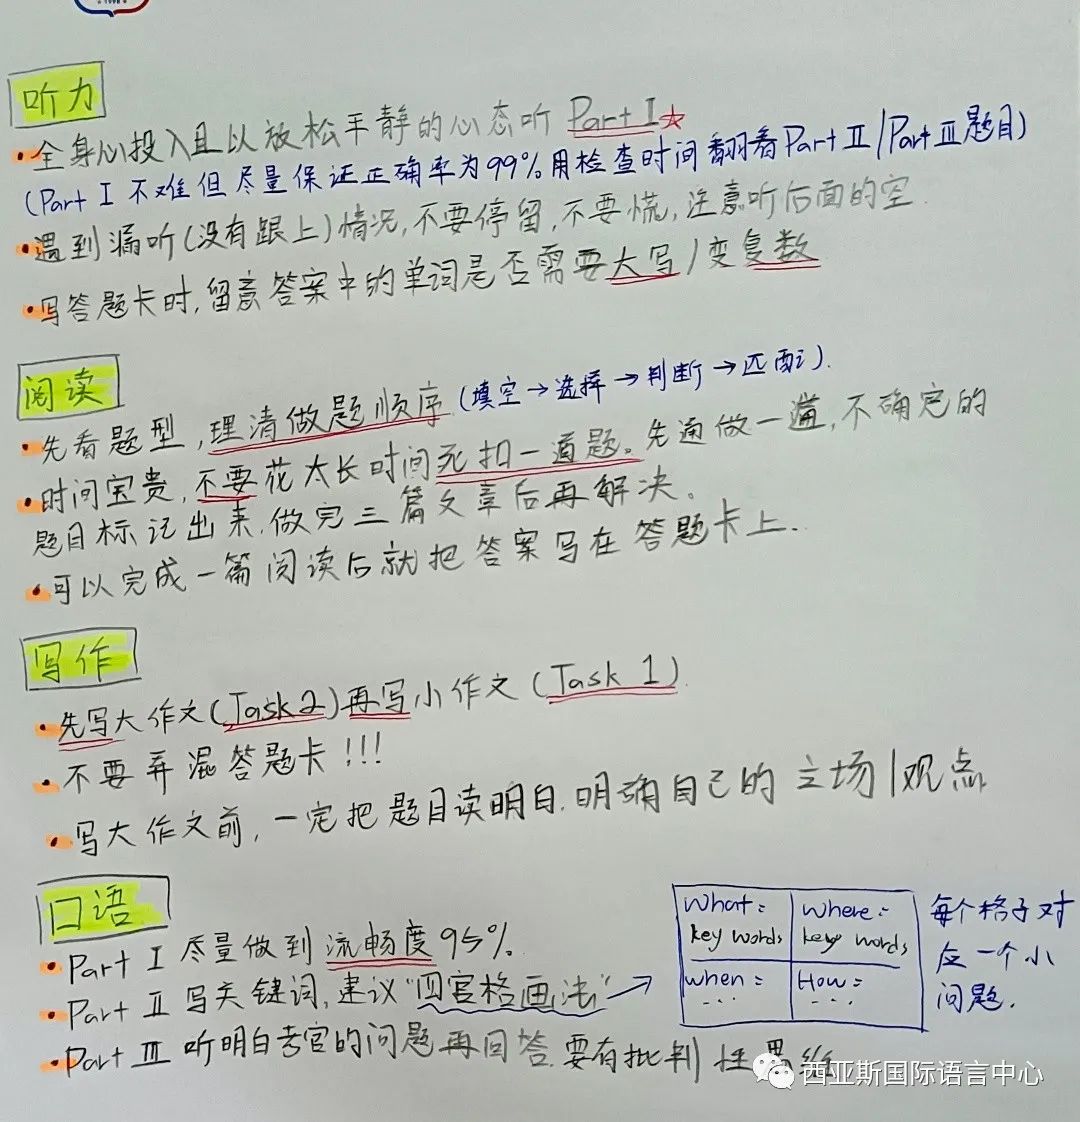 1998
听力
·全身心投入且以放松平静的心态听 Part I☆
(Part I 不难但尽量保证正确率为99%.用检查时间翻看Part II/Part III题目)
·遇到漏听(没有跟上)情况,不要停留,不要慌,注意听后面的空.
·写答题卡时,留意答案中的单词是否需要大写/变复数
阅读
·先看题型,理清做题顺序(填空→选择→判断→匹配).
·时间宝贵,不要花太长时间死扣一道题。先通做一遍,不确定的
题目标记出来.做完三篇文章后再解决.
·可以完成一篇阅读后就把答案写在答题卡上.
写作
·先写大作文(Task2)再写小作文(Task 1)
·不要弄混答题卡!!!
·写大作文前,一定把题目读明白.明确自己的立场/观点
口语
·Part I 尽量做到流畅度95%.
·Part II 写关键词,建议"四宫格画法"→
what: key words
where: key words
when: ...
How: ...
每个格子对
应一个小
问题.
·Part III 听明白考官的问题再回答.要有批判性思维
西亚斯国际语言中心